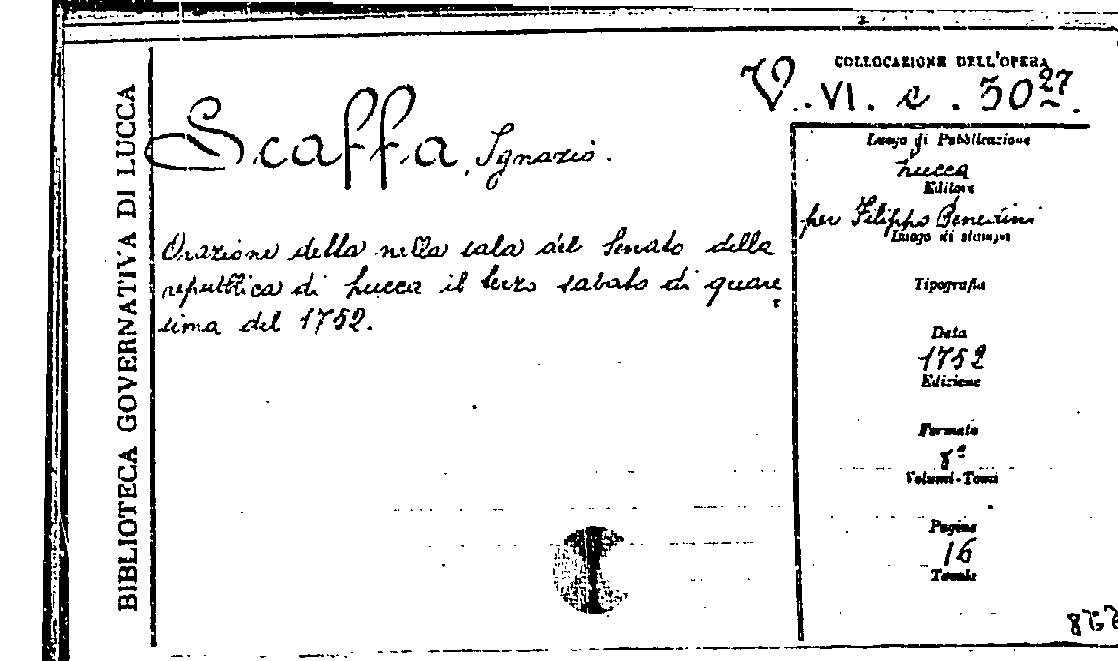 BIBLIOTECA GOVERNATIVA DI LUCCA
COLLOCAZIONE DELL'OPERA
V. VI. c. 30 27
Scaffa, Ignazio.
Orazione detta nella sala del Senato della
repubblica di Lucca il terzo sabato di quare
sima del 1752.
Luogo di Pubblicazione
Lucca
Editore
per Filippo Benedini
Luogo di stampa
Tipografia
Data
1752
Edizione
Formato
8º
Volumi-Tomi
Pagine
16
Tavole